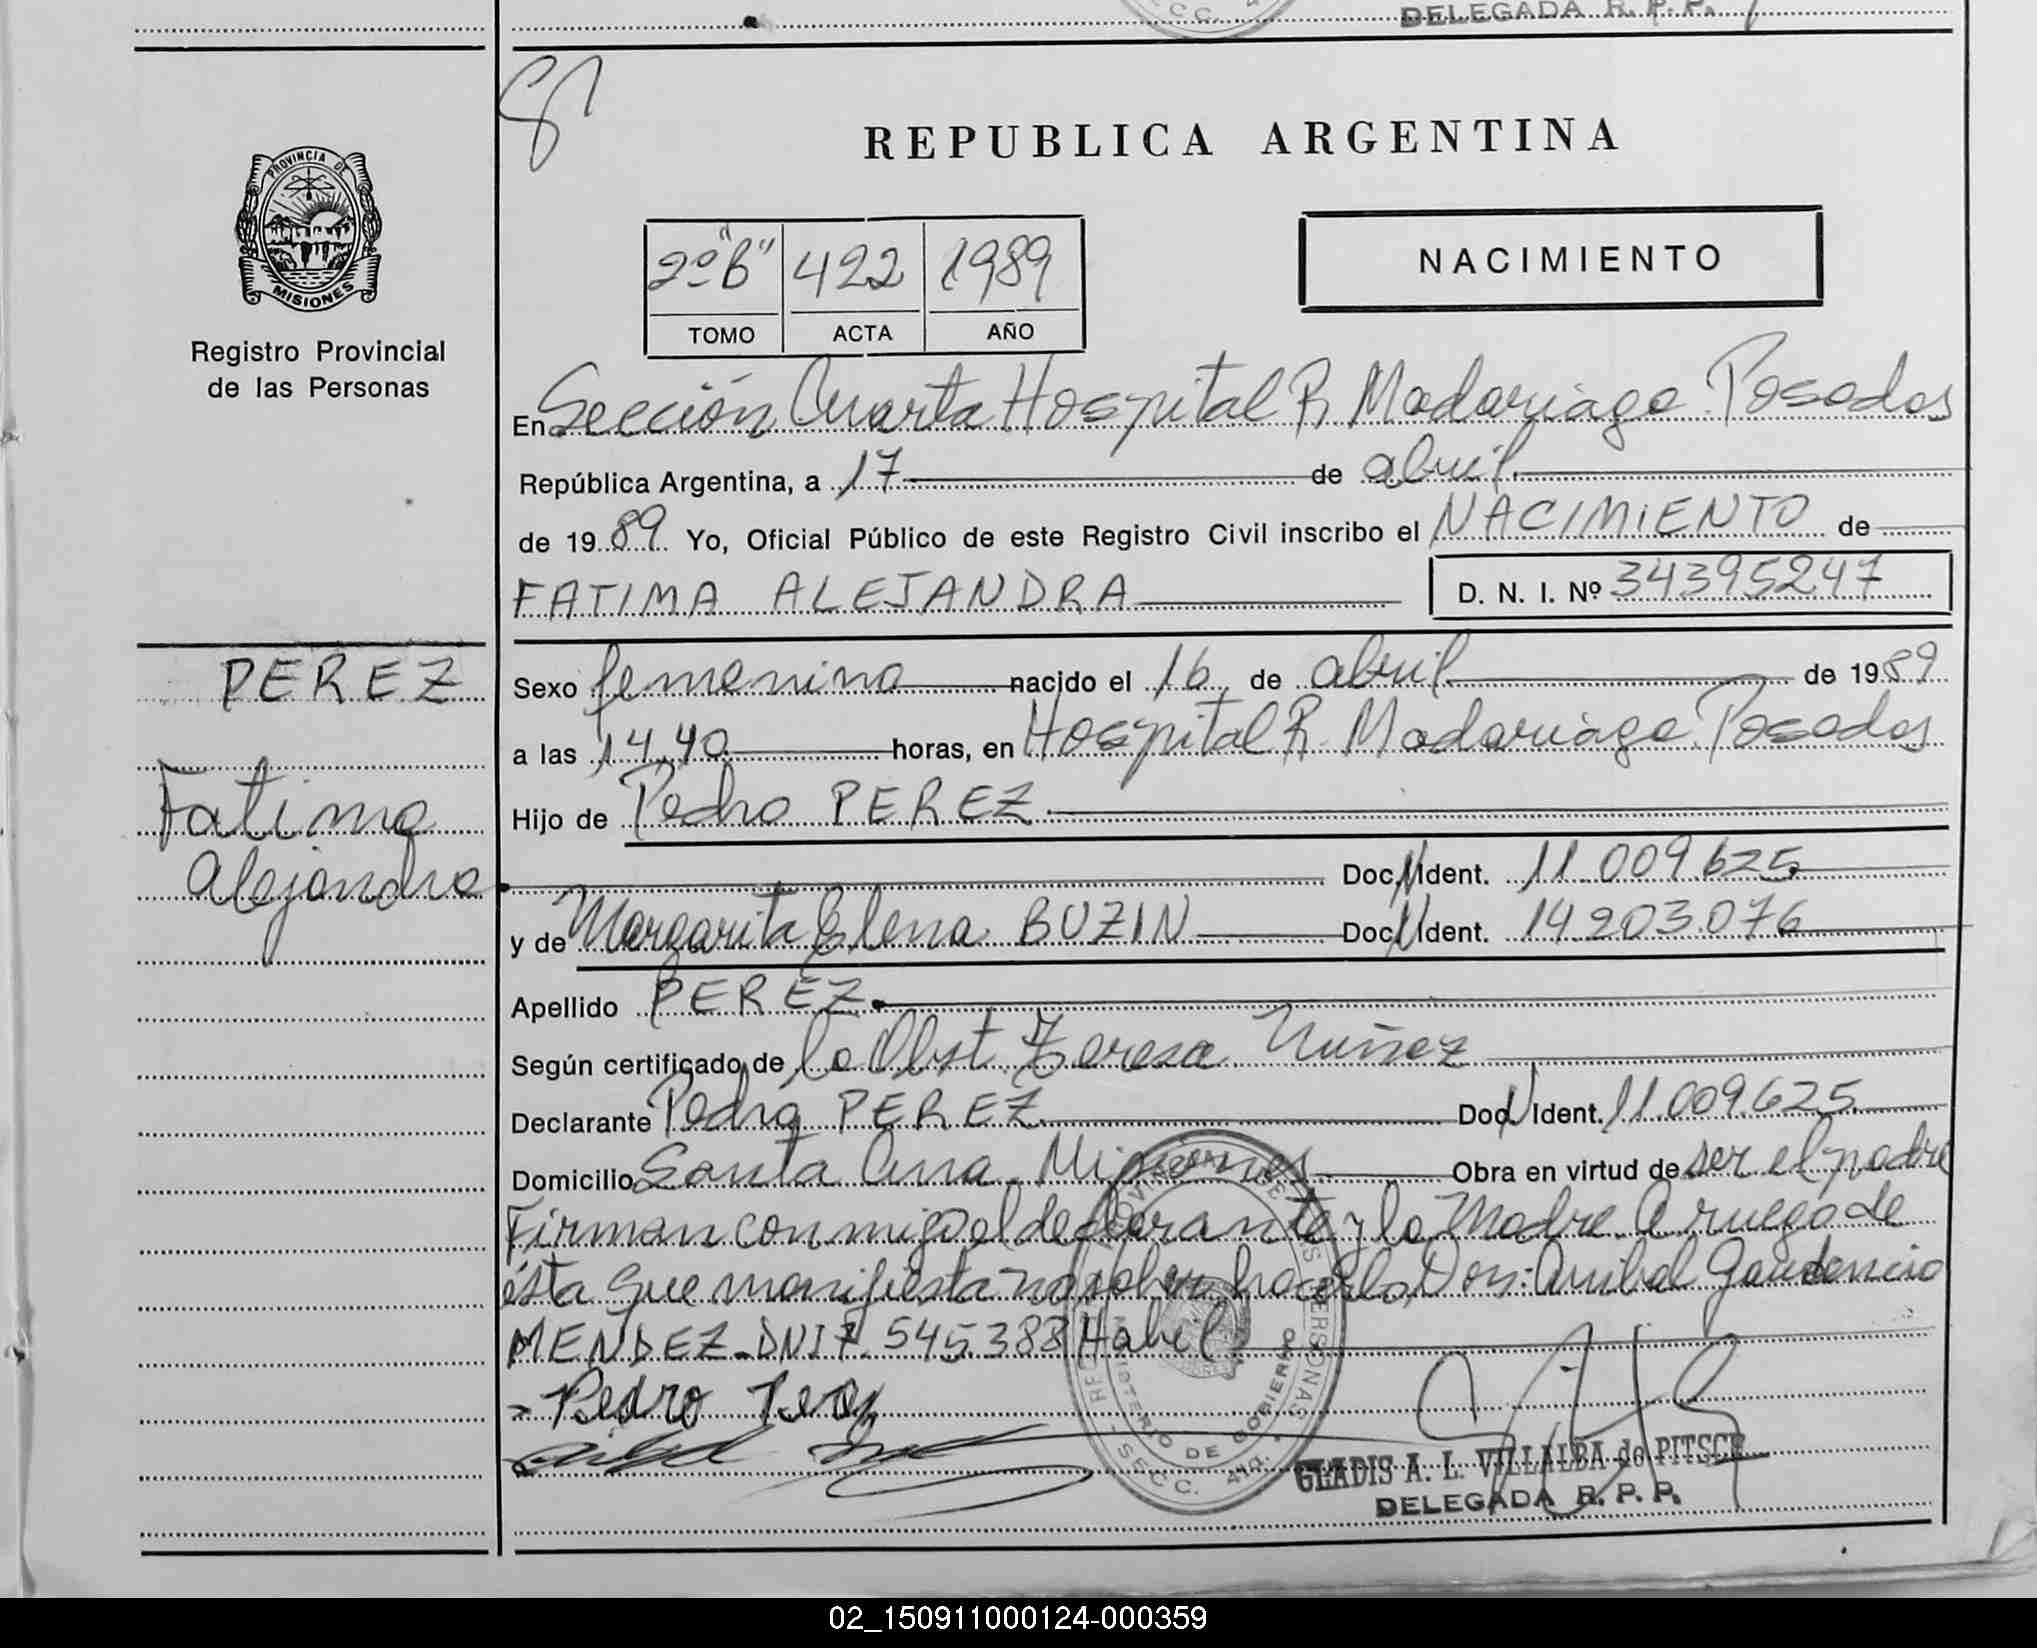 DELEGADA R. P. P.
REPUBLICA ARGENTINA
PROVINCIA DE
MISIONES
Registro Provincial
de las Personas
2º "B" 422 1989
TOMO ACTA AÑO
NACIMIENTO
En Sección Cuarta Hospital R. Madariaga. Posadas
República Argentina, a 17 de abril
de 1989 Yo, Oficial Público de este Registro Civil inscribo el NACIMIENTO de
FATIMA ALEJANDRA D. N. I. Nº 34395247
PEREZ
Fatima
Alejandra
Sexo femenino nacido el 16 de abril de 1989
a las 14,40 horas, en Hospital R. Madariaga. Posadas
Hijo de Pedro PEREZ
Doc. N. Ident. 11.009.625
y de Margarita Elena BUZIN Doc. N. Ident. 14.203.076
Apellido PEREZ
Según certificado de la Obst. Teresa Nuñez
Declarante Pedro PEREZ Doc. N. Ident. 11.009.625
Domicilio Santa Ana. Misiones Obra en virtud de ser el padre
Firman conmigo el declarante y la Madre. A ruego de
ésta que manifiesta no saber hacerlo, Don: Anibal Gaudencio
MENDEZ DNI 7.545.388 Habil
Pedro Perez
GLADIS A. L. VILLALBA de PITSCH
DELEGADA R. P. P.
MINISTERIO DE GOBIERNO
SECC. 4ta.
02_150911000124-000359